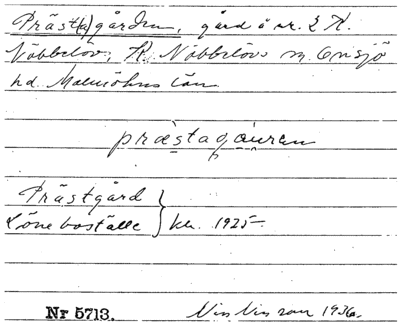 Präst(a)gården, gård å nr. 2 K.
Nöbbelöv, K. Nöbbelövs sn. Onsjö
hd. Malmöhus län
præstagáuren
Prästgård
Löneboställe } kb. 1925.
Nr 5713. 1936.